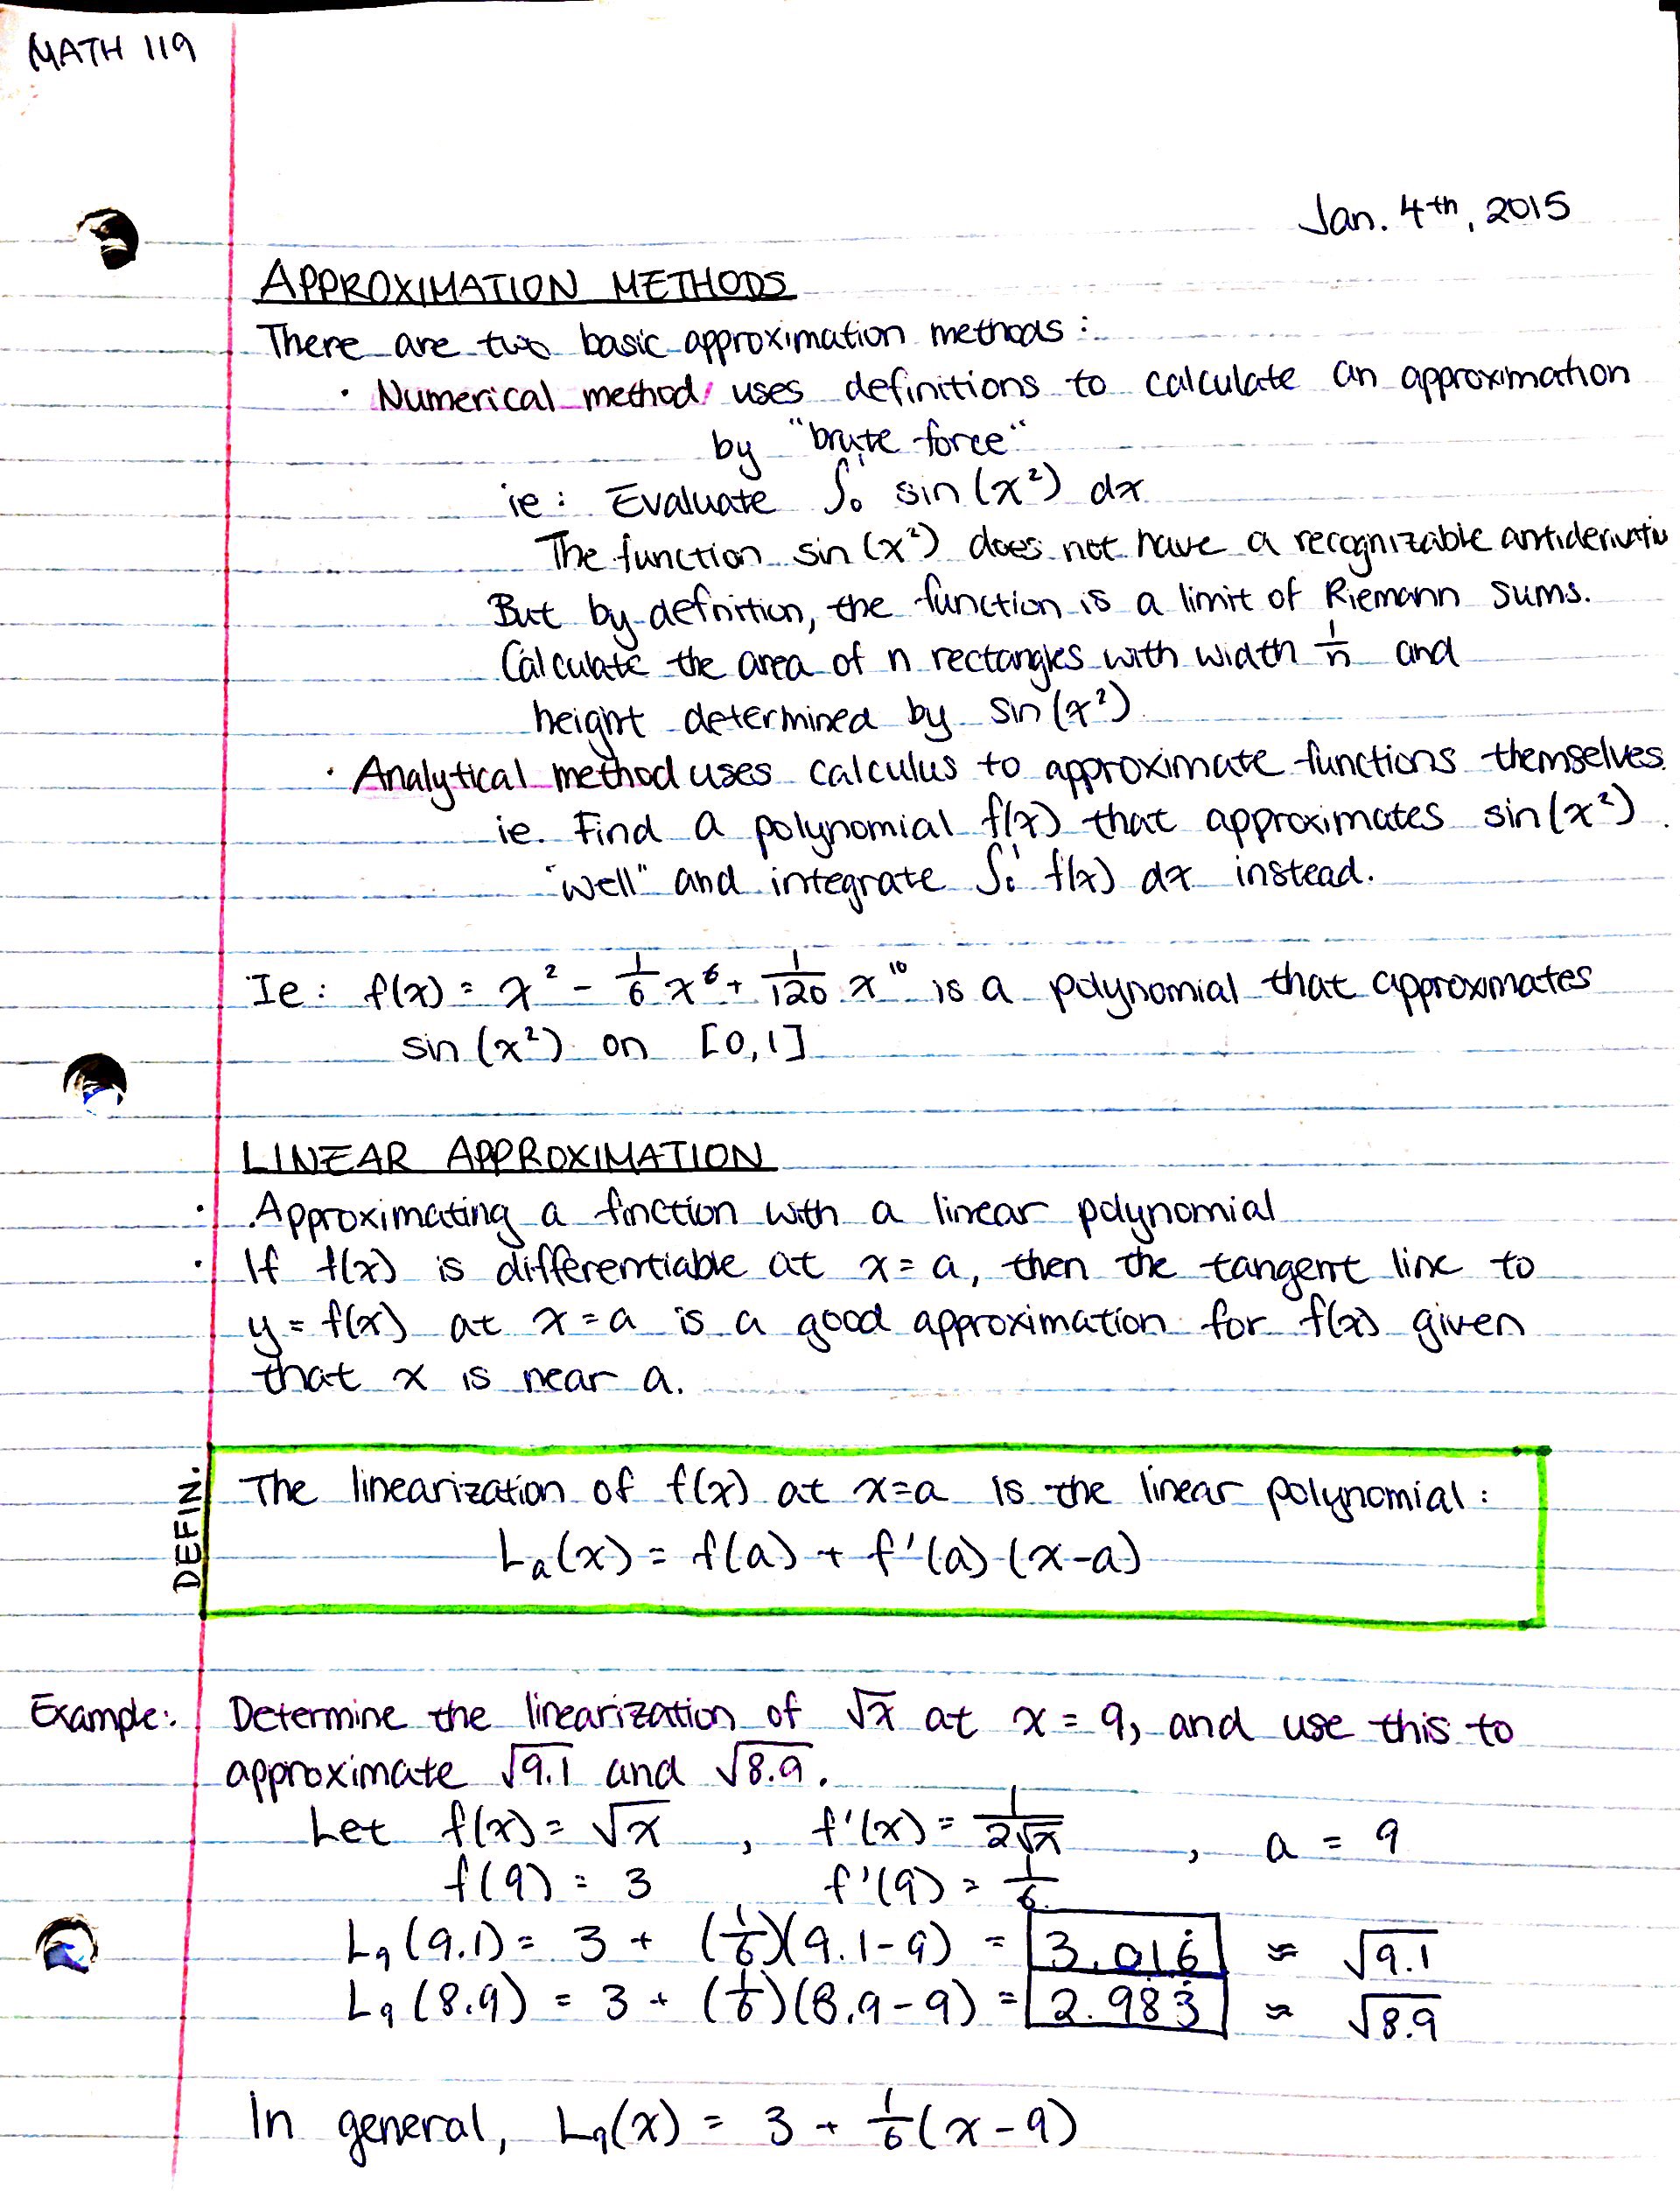 MATH 119
Jan. 4th, 2015
APPROXIMATION METHODS
There are two basic approximation methods:
· Numerical method uses definitions to calculate an approximation
by "brute force"
ie: Evaluate ∫₀¹ sin(x²) dx
The function sin(x²) does not have a recognizable antiderivativ
But by defnition, the function is a limit of Riemann sums.
Calculate the area of n rectangles with width 1/n and
height determined by sin(x²)
· Analytical method uses calculus to approximate functions themselves.
ie. Find a polynomial f(x) that approximates sin(x²).
"well" and integrate ∫₀¹ f(x) dx instead.
Ie: f(x) = x² - 1/6 x⁶ + 1/120 x¹⁰ is a polynomial that approximates
sin(x²) on [0,1]
LINEAR APPROXIMATION
· Approximating a fnction with a linear polynomial
· If f(x) is differentiable at x=a, then the tangent line to
y=f(x) at x=a is a good approximation for f(x) given
that x is near a.
DEFIN.
The linearization of f(x) at x=a is the linear polynomial:
Lₐ(x) = f(a) + f'(a)(x-a)
Example: Determine the linearization of √x at x=9, and use this to
approximate √9.1 and √8.9.
Let f(x) = √x , f'(x) = 1/(2√x) , a = 9
f(9) = 3 f'(9) = 1/6
L₉(9.1) = 3 + (1/6)(9.1-9) = 3.016̇ ≈ √9.1
L₉(8.9) = 3 + (1/6)(8.9-9) = 2.983̇ ≈ √8.9
In general, L₉(x) = 3 + 1/6(x-9)